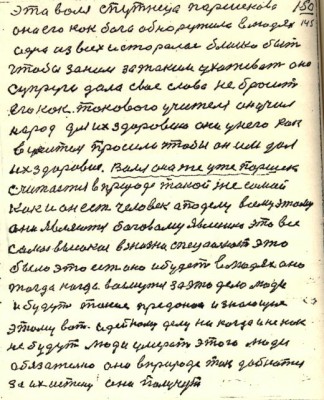 эта воля спутница паршекова 150
она его как бога обнаружила в людях 145
одна из всех старалась близко быть
чтобы за ним за таким ухаживать она
супруги дала свае слова не бросит
его как такового учителя он учил
народ для их здоровия они у него как
учителя просили чтобы он им дал
их здоровие. Валя она же уже паршек
считается в природе такой же самай
как и он есть человек а по делу всему этому
они являются боговому явлению это все
самаи высокае
было это есть оно и будет в людях оно
тогда когда возмутся за это дело люди
и будут такие преданаи и знающие
этому вот идейному делу никогда и не как
не будут люди умерать этого люди
обязательно оне в природе так добются
за их истину они получут